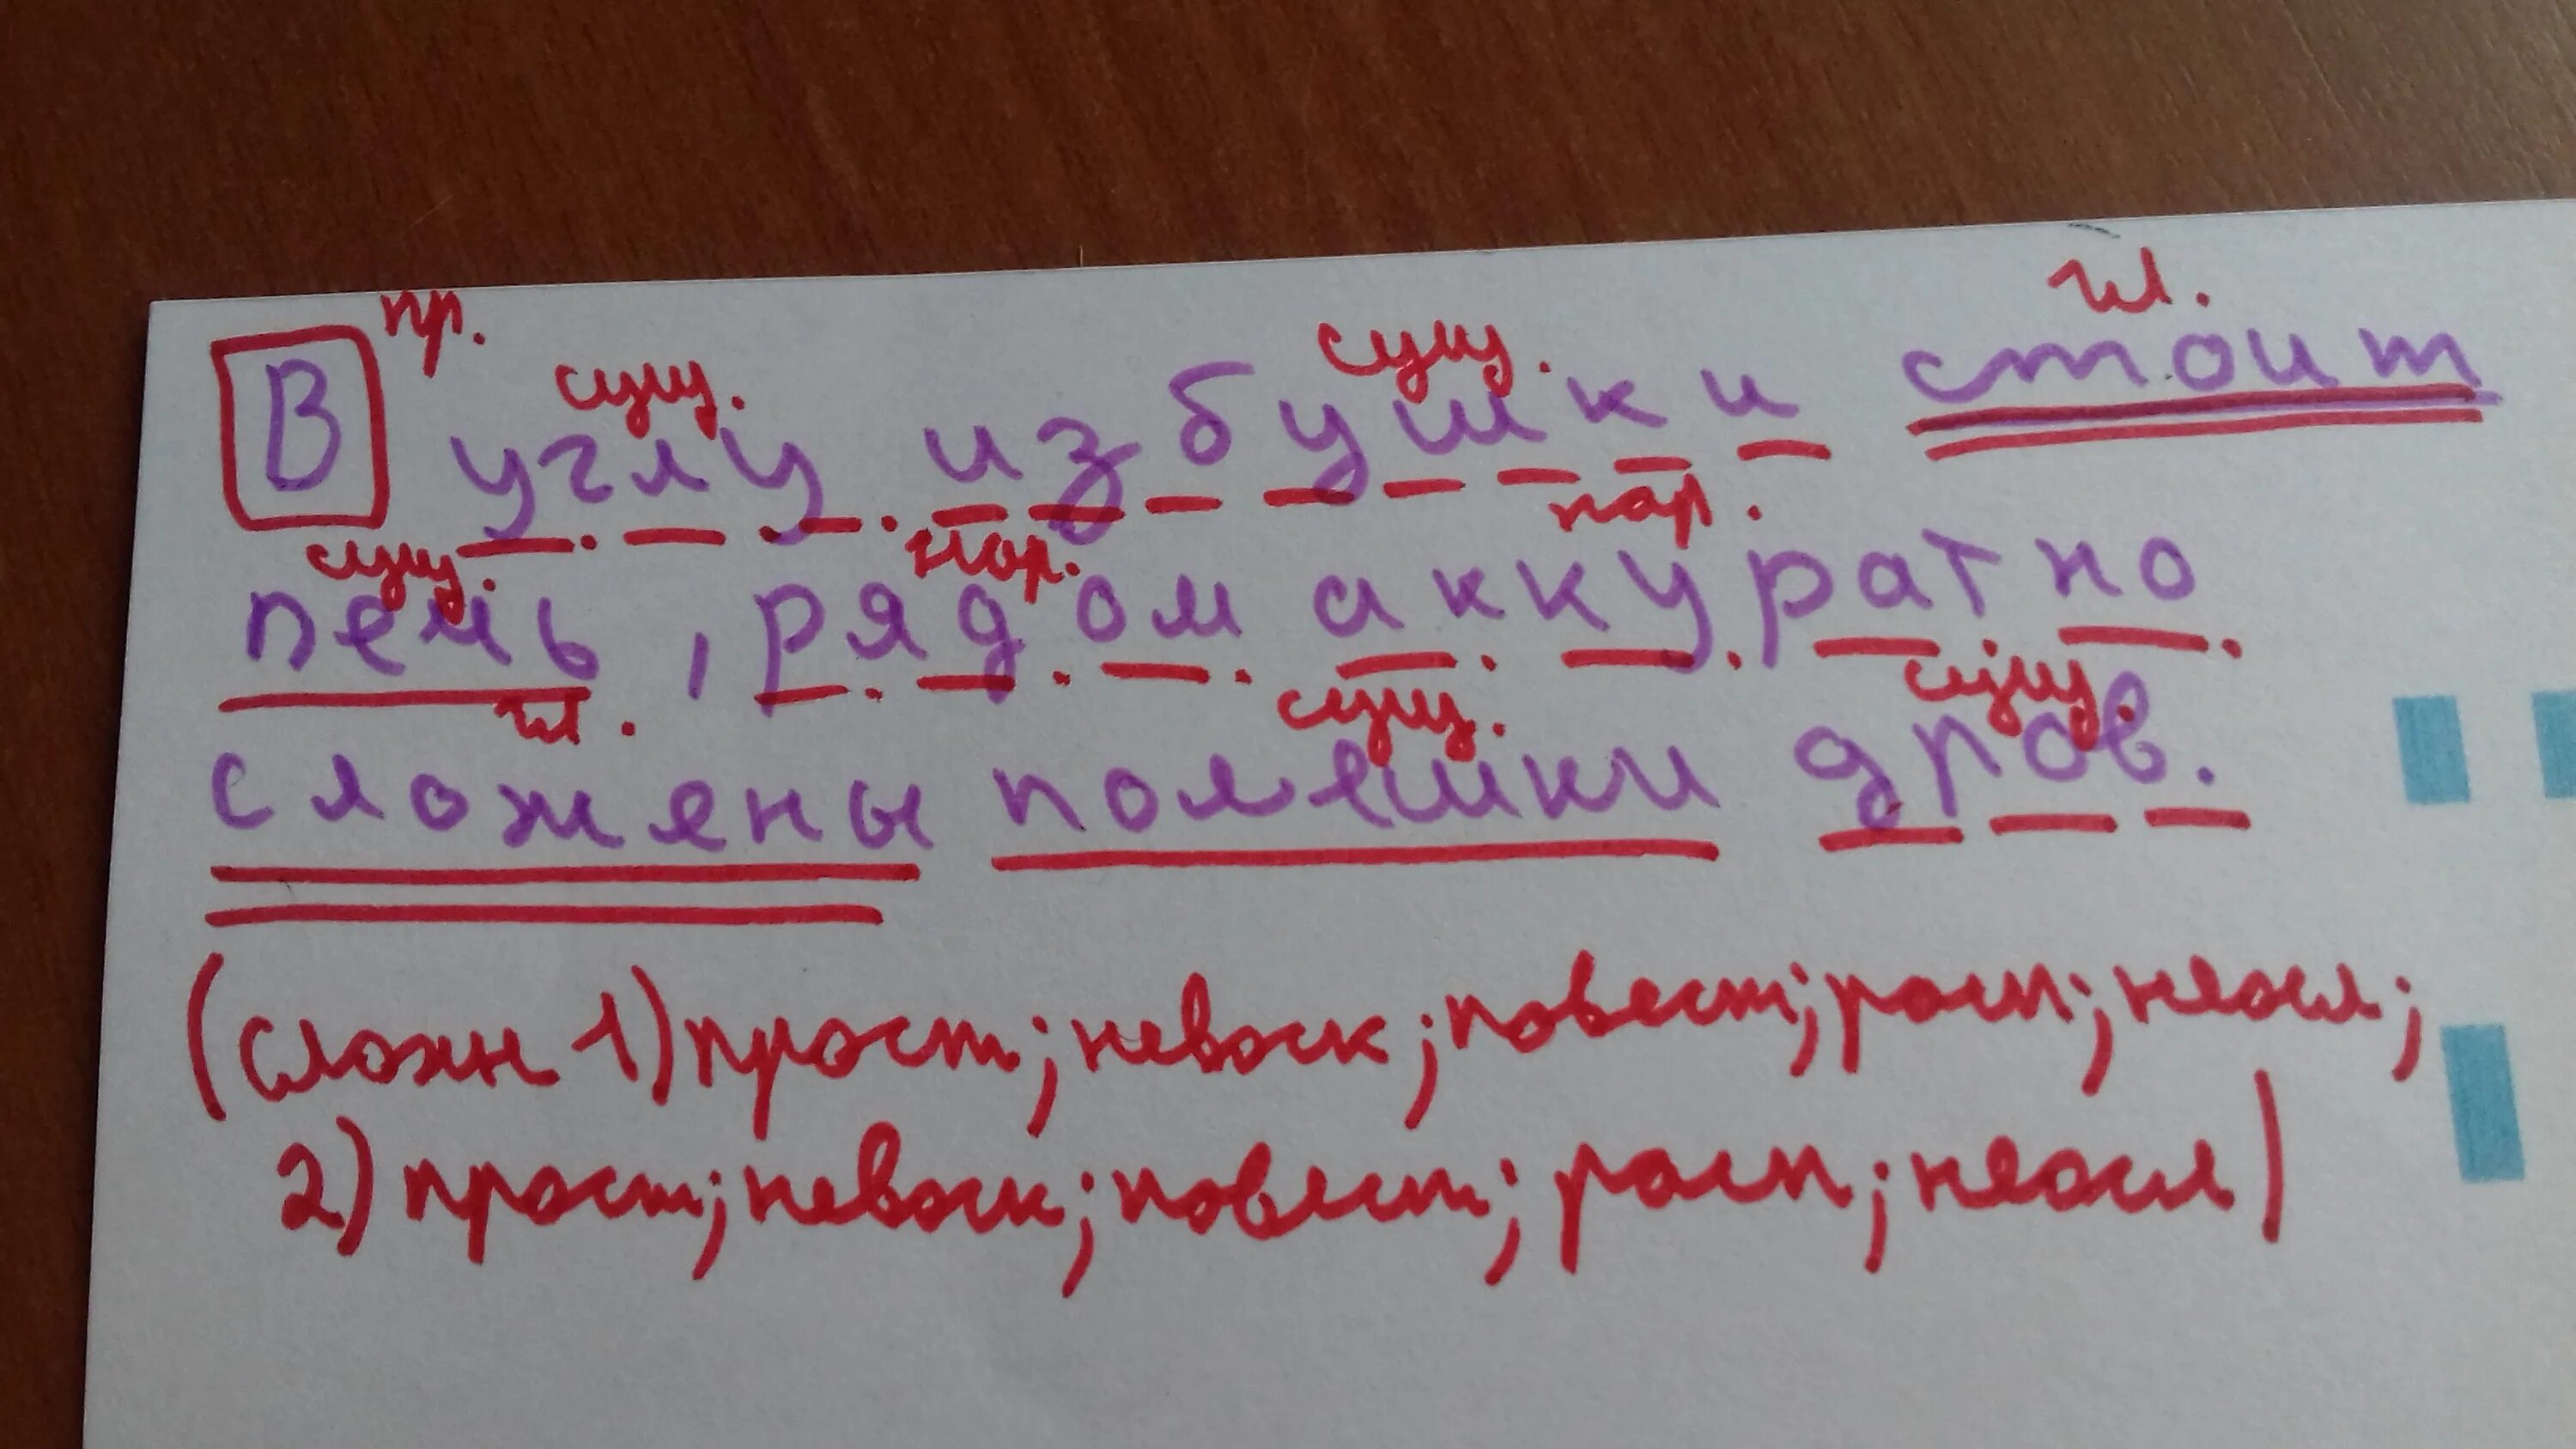 пр. сущ. сущ. гл.
В углу избушки стоит
сущ. нар. нар.
печь, рядом аккуратно
гл. сущ. сущ.
сложены полешки дров.
(сложн 1) прост; невоск; повест; расп; неосл;
2) прост; невоск; повест; расп; неосл)